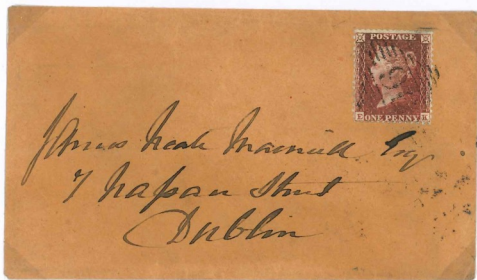 POSTAGE
ONE PENNY
James Neale Esq
7 Nassau Street
Dublin